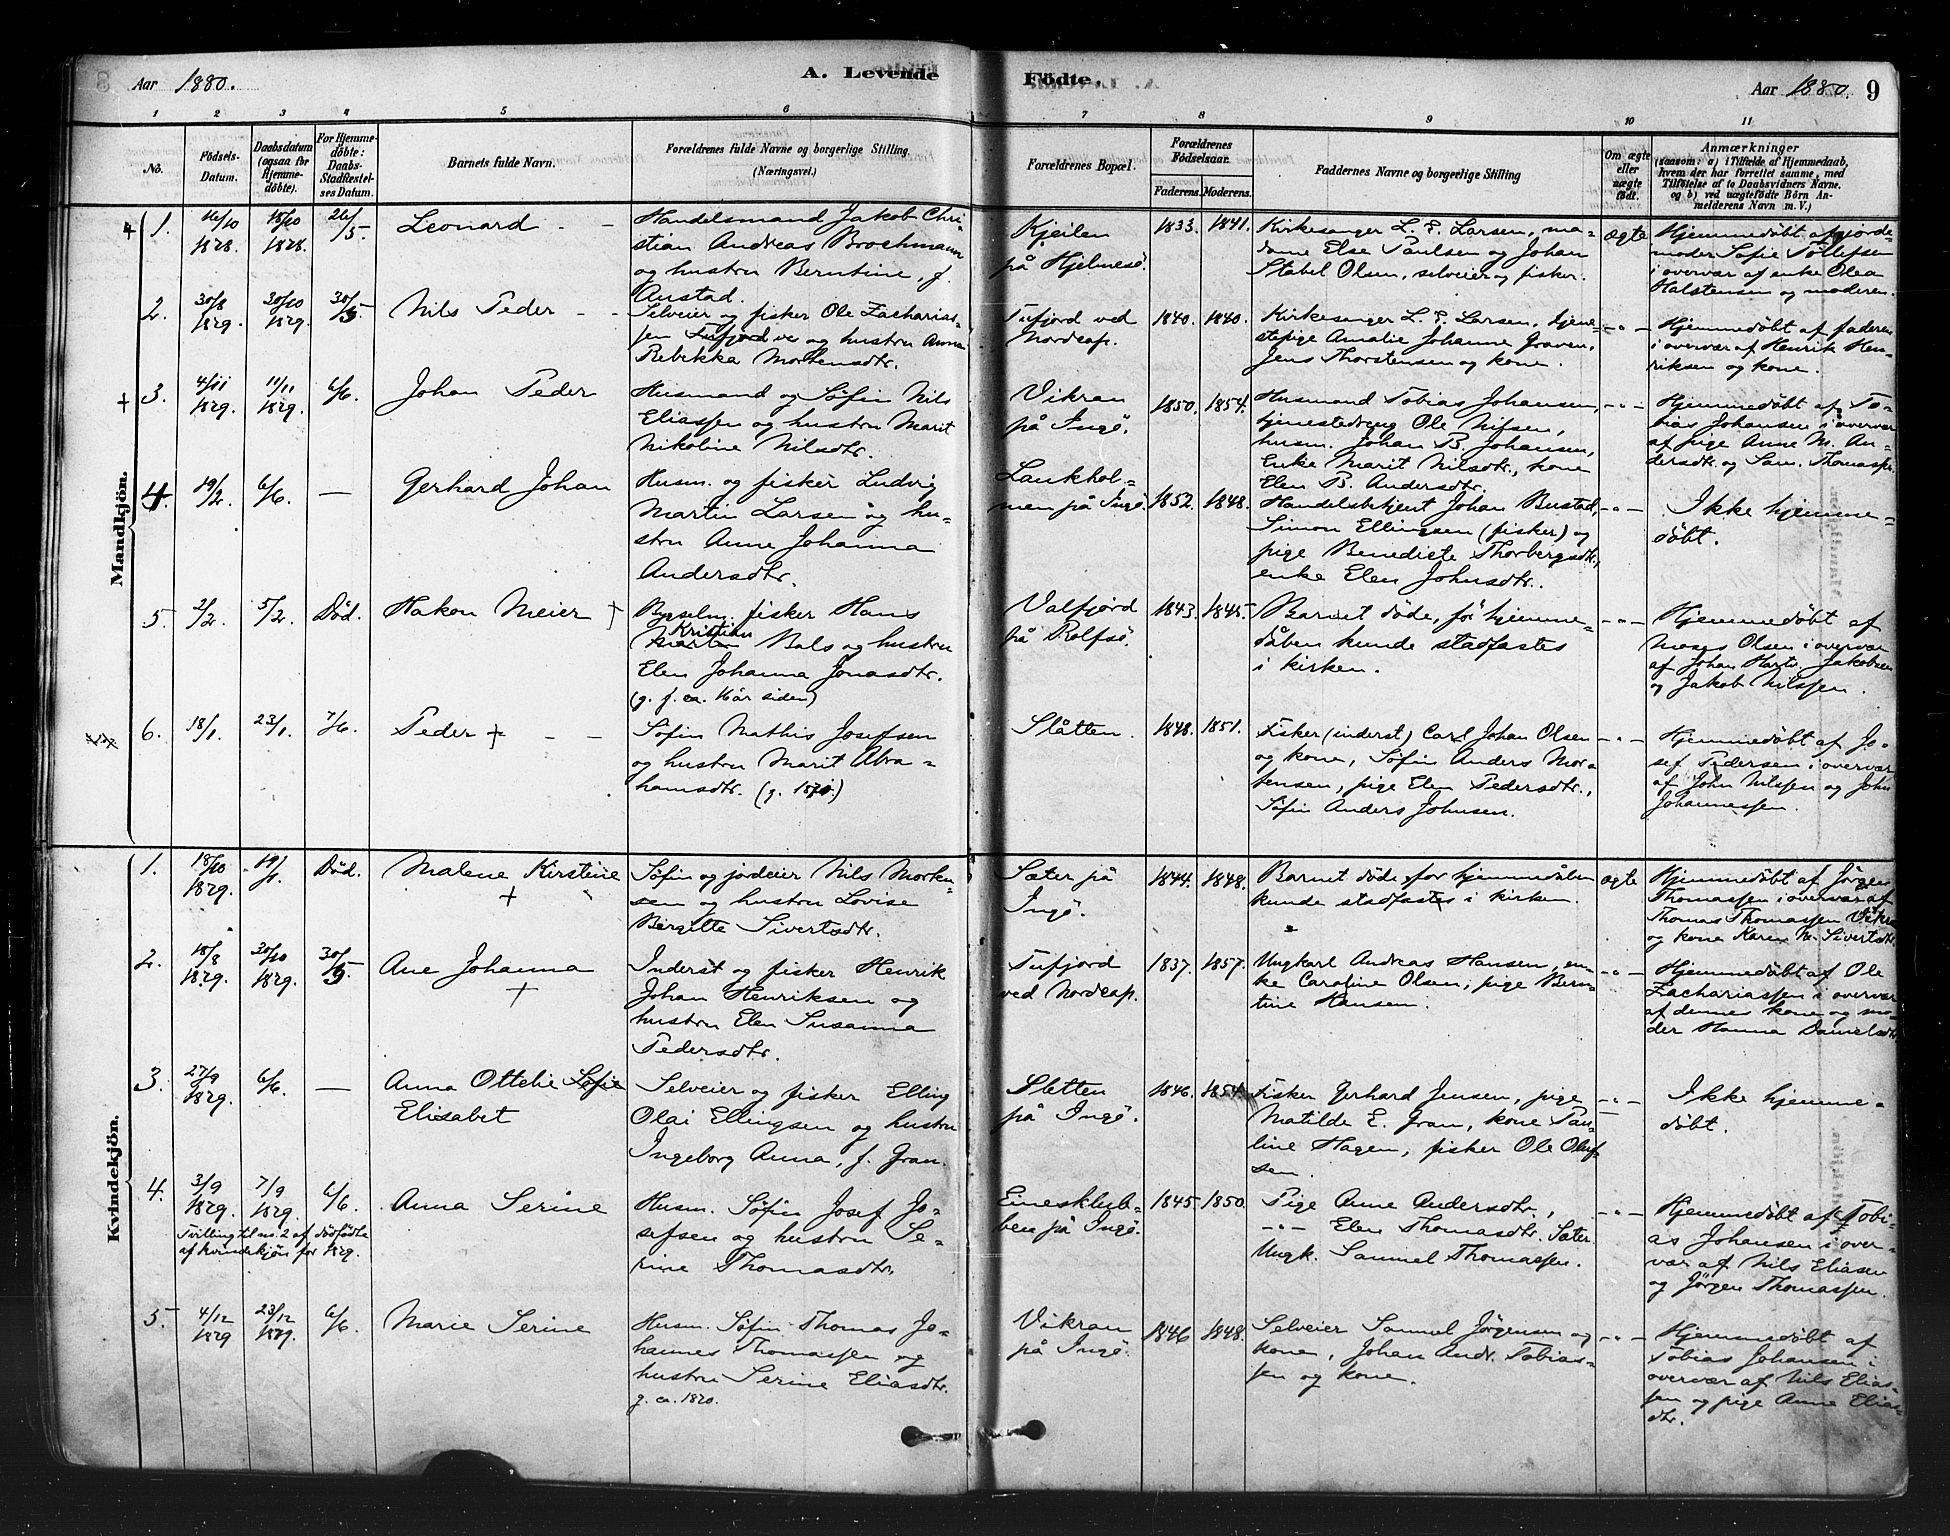 8 Aar 1880. A. Levende Födte. Aar 1880. 9
1 2 3 4 5 6 7 8 9 10 11
No. Födsels-Datum. Daabsdatum (ogsaa for Hjemmedöbte). For Hjemmedöbte: Daabs-Stadfæstelses Datum. Barnets fulde Navn. Forældrenes fulde Navne og borgerlige Stilling (Næringsvei.) Forældrenes Bopæl. Forældrenes Födselsaar. Faderens. Moderens. Faddernes Navne og borgerlige Stilling Om ægte eller uægte födt. Anmærkninger (saasom: a) i Tilfælde af Hjemmedaab, hvem der har forrettet samme, med Tilföielse af to Daabsvidners Navne. og b) ved uægtefödte Börn Anmelderens Navn m. V.)
Mandkjön.
1. 16/10 1878. 18/10 1878. 26/5. Leonard - -
Handelsmand Jakob Chri-
stian Andreas Brochmann
og hustru Berntine, f.
Anstad.
Kjeilen
på Hjelmesö.
1833. 1841.
Kirkesanger L. P. Larsen, ma-
dame Else Paulsen og Johan
Stabel Olsen, selveier og fisker.
ægte
Hjemmedöbt af jorde-
moder Sofie Tollefsen
i overvær af enke Olea
Halstensen og moderen.
2. 30/8 1879. 30/10 1879. 30/5. Nils Peder - -
Selveier og fisker Ole Zacharias-
sen Tufjord ve og hustru Anna
Rebekka Mortensdtr.
Tufjord ved
Nordcap.
1840. 1840.
Kirkesanger L. P. Larsen, tjene-
stepige Amalie Johanne Graven,
Jens Thorstensen og kone.
-"-
Hjemmedöbt af faderen
i overvær af Henrik Hen-
riksen og kone.
+ 3. 4/11 1879. 11/11 1879. 6/6. Johan Peder
Husmand og Søfin Nils
Eliassen og hustru Marit
Nikoline Nilsdtr.
Vikran
på Ingö.
1850. 1854.
Husmand Tobias Johansen,
tjenestedreng Ole Nilsen,
husm. Johan B. Johansen,
Enke Marit Nilsdtr., kone
Elen B. Andersdtr.
-"-
Hjemmedöbt af To-
bias Johansen i overvær
af pige Anne M. An-
dersdtr. og Sam. Thomassen.
4. 19/2. 6/6. — Gerhard Johan
Husm. og fisker Ludvig
Martin Larsen og hu-
stru Anne Johanna
Andersdtr.
Lankhol-
men på Ingö.
1852. 1848.
Handelsbetjent Johan Bustad,
Simon Ellingsen (fisker) og
pige Benedicte Thorbergsdtr.,
enke Elen Johnsdtr.
-"-
Ikke hjemme-
döbt.
5. 2/2. 5/2. Död. Hakon Meier +
Bygselm. fisker Hans
Kristian
Bals og hustru
Elen Johanna Jonasdtr.
(g. f. ca. 16 år siden)
Valfjord
på Rolfsö.
1843. 1845.
Barnet döde, för hjemme-
dåben kunde stadfæstes
i kirken.
-"-
Hjemmedöbt af
Moses Olsen i overvær
af Johan Hartv. Jakobsen
og Jakob Nilssen.
6. 18/1. 23/1. 7/6. Peder + - -
Søfin Mathis Josefsen
og hustru Marit Abra-
hamsdtr. (g. 1870.)
Slåtten.
1848. 1851.
Fisker (inderst) Carl Johan Olsen
og kone, Søfin Anders Mor-
tensen, pige Elen Pedersdtr.,
Søfin Anders Johnsen.
-"-
Hjemmedöbt af Jo-
sef Pedersen i overvær
af John Nilssen og John
Johannessen.
Kvindekjön.
1. 18/10 1879. 19/1. Död. Malene Kirstine +
Søfin og jordeier Nils Morten-
sen og hustru Lovise
Bergitte Sivertsdtr.
Sæter på
Ingö.
1844. 1848.
Barnet döde, för hjemmedåben
kunde stadfæstes i kirken.
ægte
Hjemmedöbt af Jörgen
Thomassen i overvær af
Thomas Thomassen Vikran
og kone Karen B. Sivertsdtr.
2. 18/8 1879. 30/10 1879. 30/5. Ane Johanna +
Inderst og fisker Henrik
Johan Henriksen og
hustru Elen Susanna
Pedersdtr.
Tufjord
ved Nordcap.
1837. 1857.
Ungkarl Andreas Hansen, en-
ke Caroline Olsen, pige Bern-
tine Hansen.
-"-
Hjemmedöbt af Ole
Zachariassen i overvær
af dennes kone og mo-
der Hanna Danielsdtr.
3. 27/9 1879. 6/6. — Anna Ottelie Sofie
Elisabet
Selveier og fisker Elling
Olai Ellingsen og hustru
Ingeborg Anna, f. Gran.
Sletten
på Ingö.
1846. 1854.
Fisker Gerhard Jensen, pige
Matilde E. Gran, kone Pau-
line Hagen, fisker Ole Oluf-
sen.
-"-
Ikke hjemme-
döbt.
4. 3/9 1879. 7/9 1879. 6/6. Anna Serine
Tvilling til no. 2 af dödfödte
af kvindekjön for 1879.
Husm. Søfin Josef Jo-
sefsen og hustru Se-
rine Thomasdtr.
Einesklub-
ben på Ingö.
1845. 1850.
Pige Anne Andersdtr.,
-"- Elen Thomasdtr. Sæter.
Ungk. Samuel Thomassen.
-"-
Hjemmedöbt af Tobi-
as Johansen i over-
vær af Nils Eliasen
og Jörgen Thomassen.
5. 4/12 1879 23/12 1879. 6/6. Marie Serine
Husm. Søfin Thomas Jo-
hannes Thomassen og
hustru Serine Eliasdtr.
g. ca. 1870.
Vikran
på Ingö.
1846 1848.
Selveier Samuel Jörgensen og
kone, Johan Andr. Tobias-
sen og kone.
-"-
Hjemmedöbt af
Tobias Johansen i
overvær af Nils Elias-
sen og pige Anne Elias-
dtr.